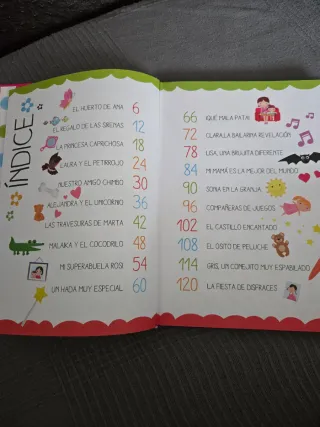 ÍNDICE
EL HUERTO DE ANA 6
EL REGALO DE LAS SIRENAS 12
LA PRINCESA CAPRICHOSA 18
LAURA Y EL PETIRROJO 24
NUESTRO AMIGO CHIMBO 30
ALEJANDRA Y EL UNICORNIO 36
LAS TRAVESURAS DE MARTA 42
MALAIKA Y EL COCODRILO 48
MI SUPERABUELA ROSI 54
UN HADA MUY ESPECIAL 60
66 ¡QUÉ MALA PATA!
72 CLARA, LA BAILARINA REVELACIÓN
78 LISA, UNA BRUJITA DIFERENTE
84 MI MAMÁ ES LA MEJOR DEL MUNDO
90 SONIA EN LA GRANJA
96 COMPAÑERAS DE JUEGOS
102 EL CASTILLO ENCANTADO
108 EL OSITO DE PELUCHE
114 GRIS, UN CONEJITO MUY ESPABILADO
120 LA FIESTA DE DISFRACES